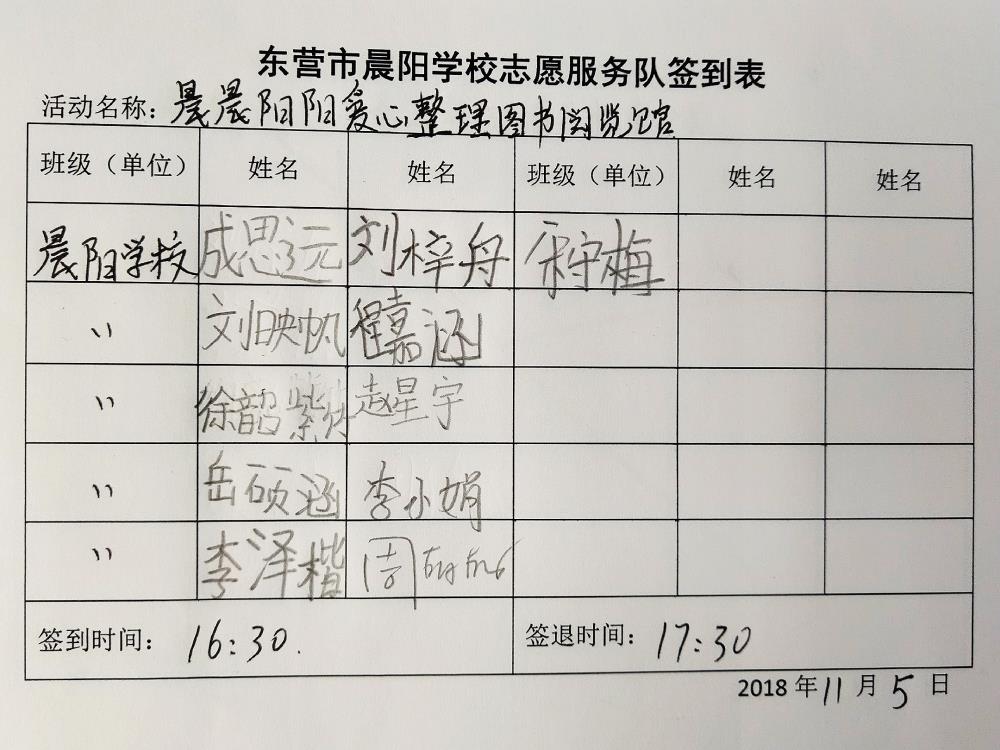 东营市晨阳学校志愿服务队签到表
活动名称：晨晨阳阳爱心整理图书阅览馆
班级（单位） 姓名 姓名 班级（单位） 姓名 姓名
晨阳学校 成思远 刘梓舟 宋守梅
〃 刘映帆 程嘉涵
〃 徐韶紫 赵星宇
〃 岳硕涵 李小娟
〃 李泽楷 周
签到时间：16:30. 签退时间：17:30
2018年11月5日